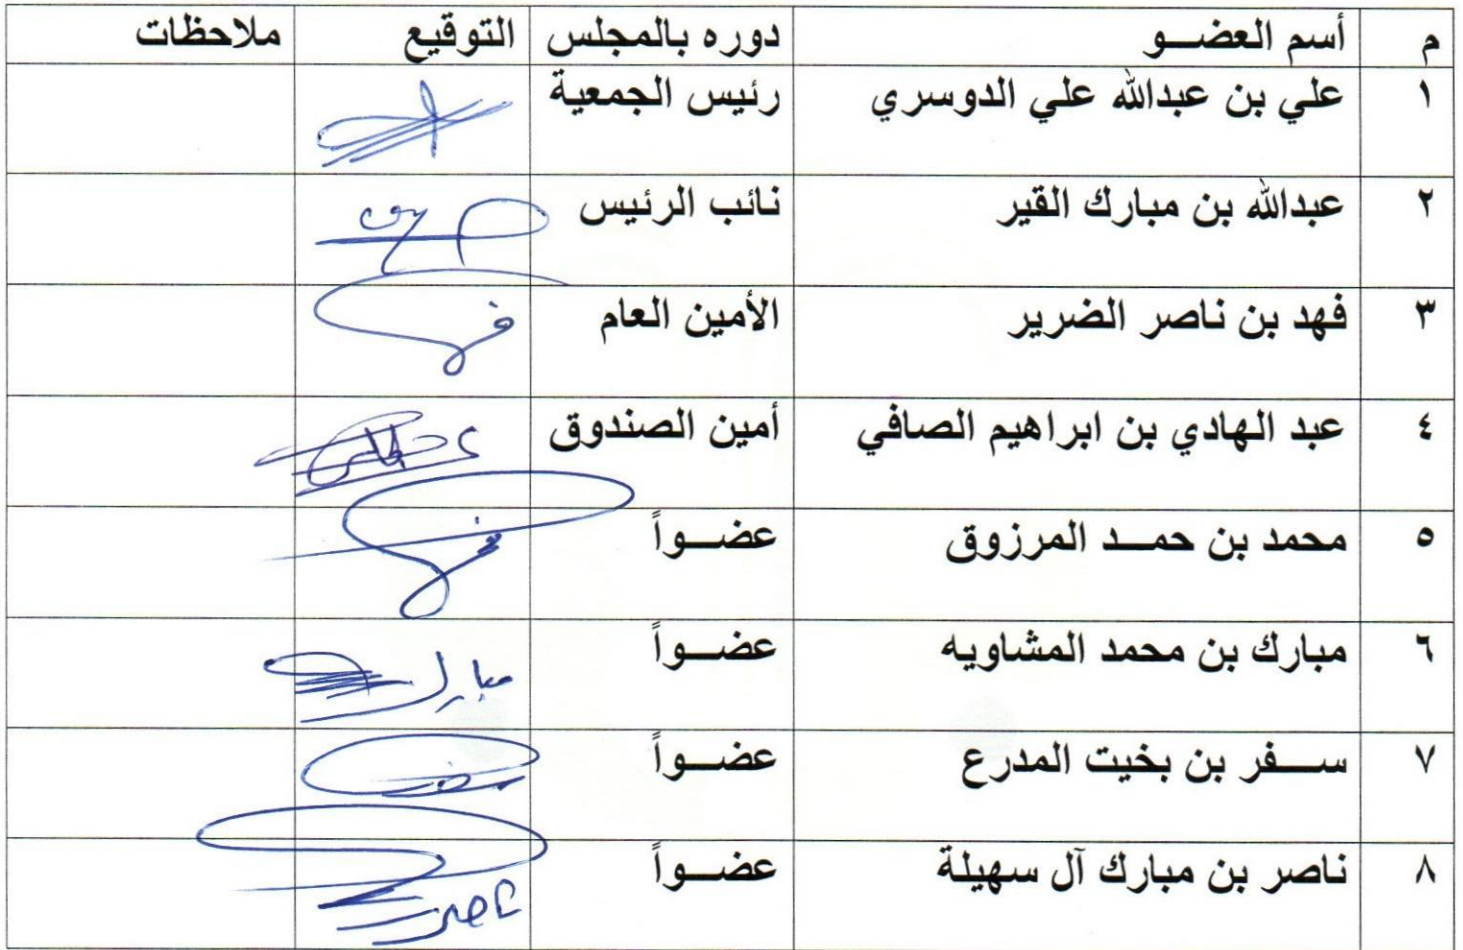 م أسم العضـــو دوره بالمجلس التوقيع ملاحظات
١ علي بن عبدالله علي الدوسري رئيس الجمعية
٢ عبدالله بن مبارك القير نائب الرئيس
٣ فهد بن ناصر الضرير الأمين العام
٤ عبد الهادي بن ابراهيم الصافي أمين الصندوق
٥ محمد بن حمـــد المرزوق عضـــواً
٦ مبارك بن محمد المشاويه عضـــواً مبارك
٧ ســـفر بن بخيت المدرع عضـــواً
٨ ناصر بن مبارك آل سهيلة عضـــواً